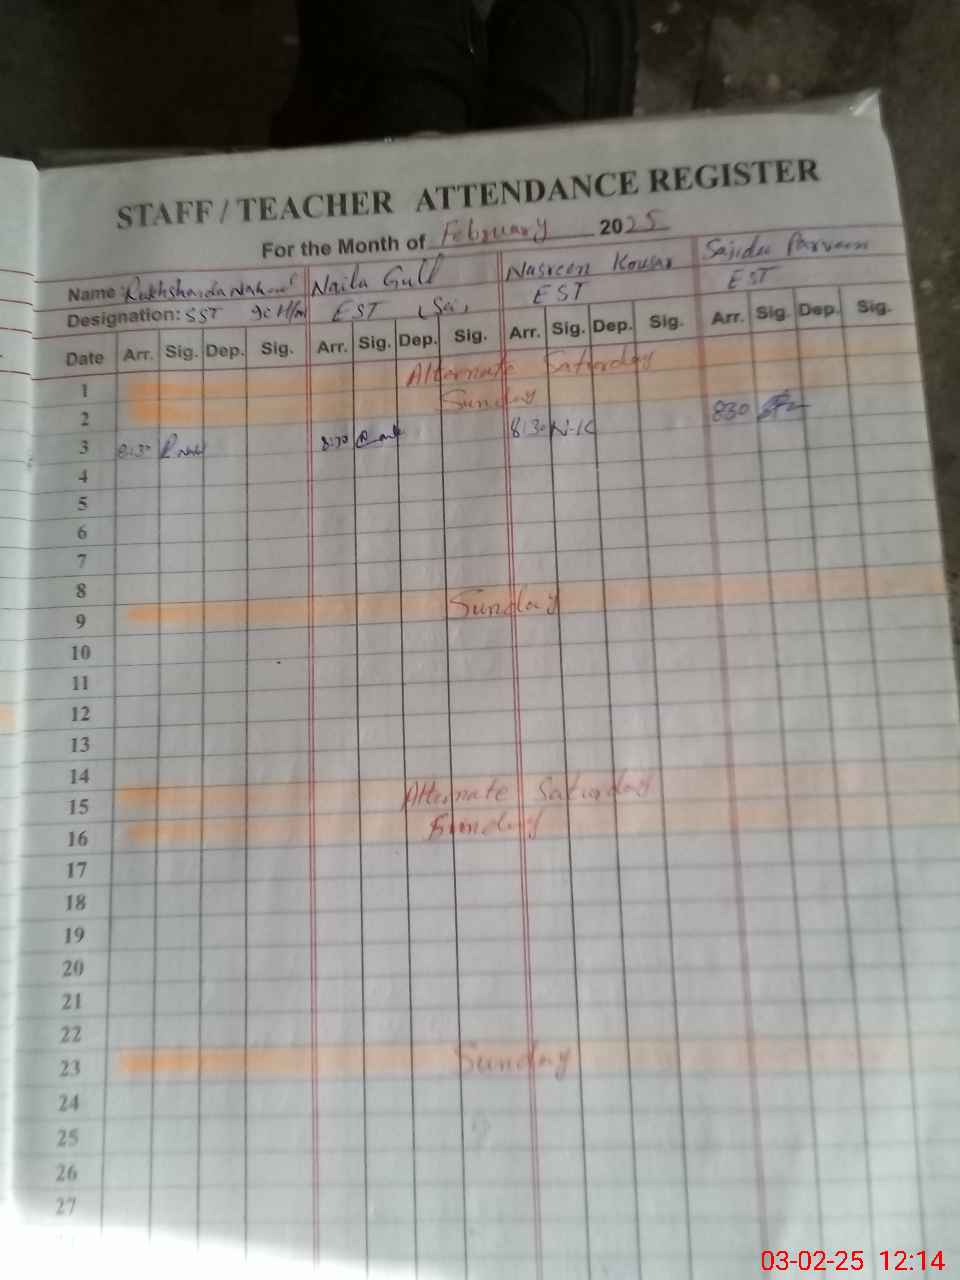 STAFF / TEACHER ATTENDANCE REGISTER
For the Month of February 2025
Name Naila Gull Nasreen Kousar Sajida Parveen
Designation: SST EST EST EST
Date Arr. Sig. Dep. Sig. Arr. Sig. Dep. Sig. Arr. Sig. Dep. Sig. Arr. Sig. Dep. Sig.
1 Alternate Saturday
2 Sunday
3 8:30 8:30 8:30 N-K 830
4
5
6
7
8
9 Sunday
10
11
12
13
14
15 Alternate Saturday
16 Sunday
17
18
19
20
21
22
23 Sunday
24
25
26
27
03-02-25 12:14